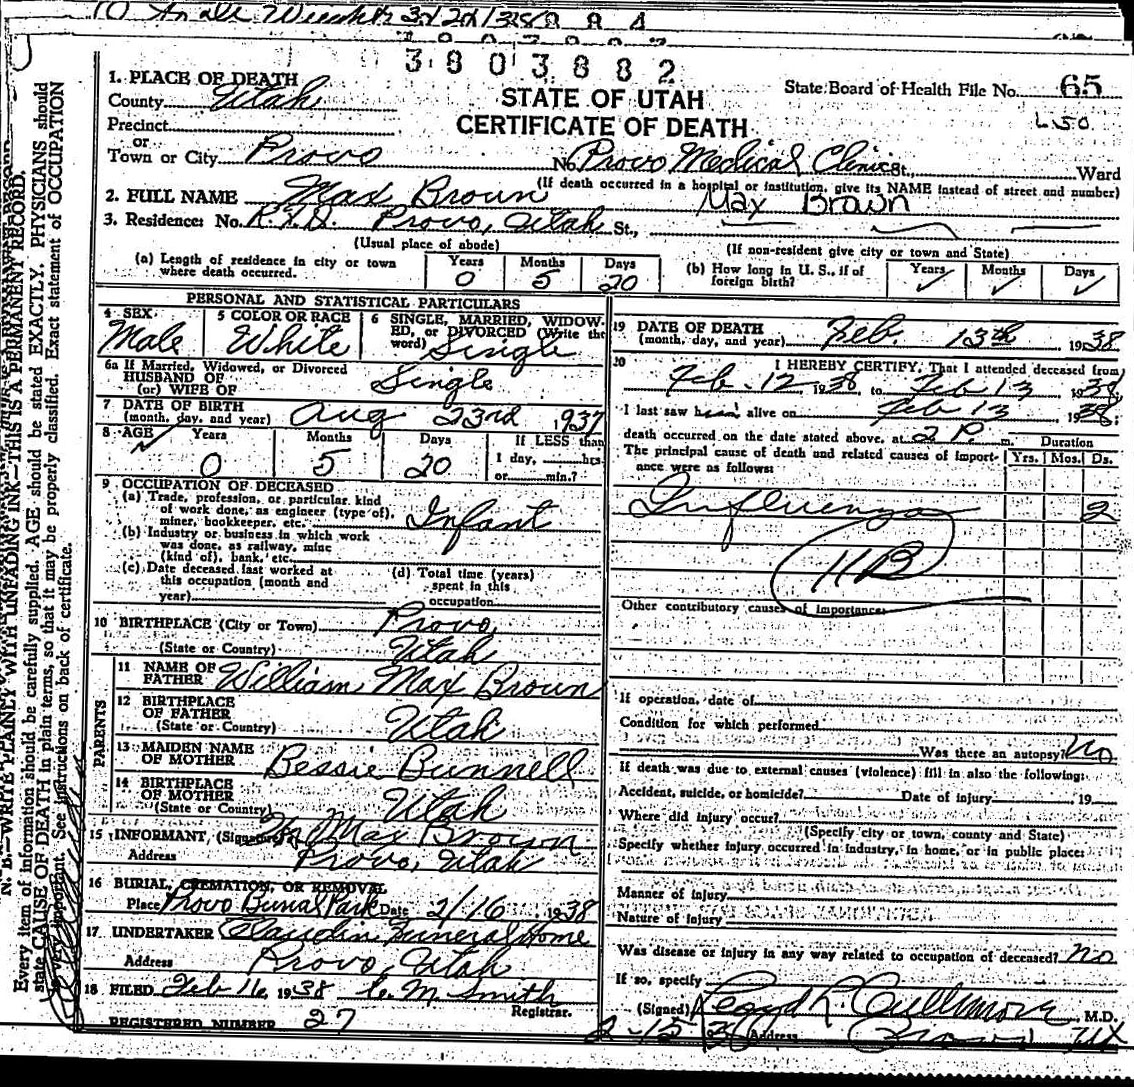 3 8 0 3 8 8 2
1. PLACE OF DEATH
County Utah
STATE OF UTAH
State Board of Health File No. 65
Precinct
CERTIFICATE OF DEATH
L50
or
Town or City Provo No. Provo Medical Clinic St., Ward
(If death occurred in a hospital or institution, give its NAME instead of street and number)
2. FULL NAME Max Brown Max Brown
3. Residence: No. R.F.D. Provo, Utah St.,
(Usual place of abode) (If non-resident give city or town and State)
(a) Length of residence in city or town where death occurred. Years 0 Months 5 Days 20
(b) How long in U. S., if of foreign birth? Years ✓ Months ✓ Days ✓
PERSONAL AND STATISTICAL PARTICULARS
4 SEX Male
5 COLOR OR RACE White
6 SINGLE, MARRIED, WIDOWED, or DIVORCED (Write the word) Single
6a If Married, Widowed, or Divorced
HUSBAND OF
(or) WIFE OF Single
7 DATE OF BIRTH
(month, day, and year) Aug 23rd 1937
8 AGE Years Months Days If LESS than
0 5 20 1 day, hrs.
or min.?
9 OCCUPATION OF DECEASED
(a) Trade, profession, or particular kind
of work done, as engineer (type of),
miner, bookkeeper, etc. Infant
(b) Industry or business in which work
was done, as railway, mine
(kind of), bank, etc.
(c) Date deceased last worked at
this occupation (month and
year)
(d) Total time (years)
spent in this
occupation
10 BIRTHPLACE (City or Town) Provo
(State or Country) Utah
PARENTS
11 NAME OF
FATHER William Max Brown
12 BIRTHPLACE
OF FATHER
(State or Country) Utah
13 MAIDEN NAME
OF MOTHER Bessie Bunnell
14 BIRTHPLACE
OF MOTHER
(State or Country) Utah
15 INFORMANT, (Signed) Wm Max Brown
Address Provo, Utah
16 BURIAL, CREMATION, OR REMOVAL
Place Provo Burial Park Date 2/16 1938
17 UNDERTAKER Claudin Funeral Home
Address Provo, Utah
18 FILED Feb 16, 1938 C. M. Smith
Registrar.
REGISTERED NUMBER 27
19 DATE OF DEATH
(month, day, and year) Feb. 13th 1938
20 I HEREBY CERTIFY, That I attended deceased from
Feb. 12 1938, to Feb 13 1938,
I last saw him alive on Feb 13 1938,
death occurred on the date stated above, at 2 P. m.
Duration
The principal cause of death and related causes of importance were as follows: Yrs. Mos. Ds.
Influenza 2
11B
Other contributory causes of importance:
If operation, date of
Condition for which performed
Was there an autopsy? No
If death was due to external causes (violence) fill in also the following:
Accident, suicide, or homicide? Date of injury 19
Where did injury occur?
(Specify city or town, county and State)
Specify whether injury occurred in industry, in home, or in public place:
Manner of injury
Nature of injury
Was disease or injury in any way related to occupation of deceased? No
If so, specify
(Signed) L Cullimore, M.D.
2-15 38 Address Provo UT
N. B.—WRITE PLAINLY WITH UNFADING INK—THIS IS A PERMANENT RECORD.
Every item of information should be carefully supplied. AGE should be stated EXACTLY. PHYSICIANS should
state CAUSE OF DEATH in plain terms, so that it may be properly classified. Exact statement of OCCUPATION
is very important. See instructions on back of certificate.